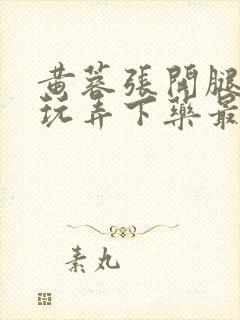 黄蓉張開腿
玩弄下藥最
素丸